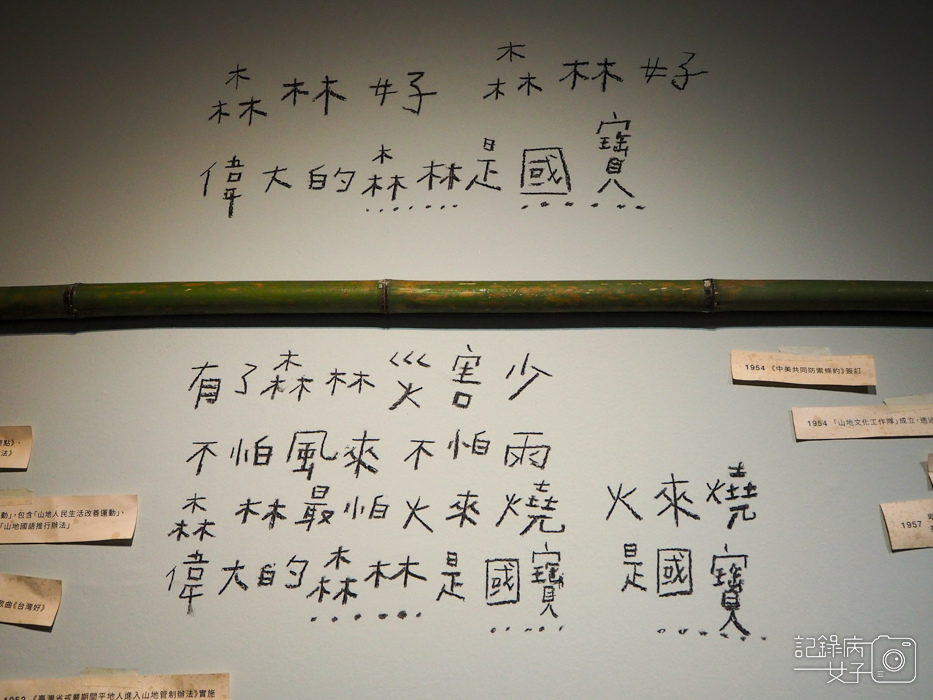 森林好 森林好
偉大的森林是國寶
有了森林災害少
不怕風來不怕雨
森林最怕火來燒 火來燒
偉大的森林是國寶 是國寶
1954 《中美共同防禦條約》簽訂
1954 「山地文化工作隊」成立，透過
1957
點》、
法》
動」，包含「山地人民生活改善運動」、
「山地國語推行辦法」
歌曲《台灣好》
1952 《臺灣省戒嚴期間平地人進入山地管制辦法》實施
記錄病
女子